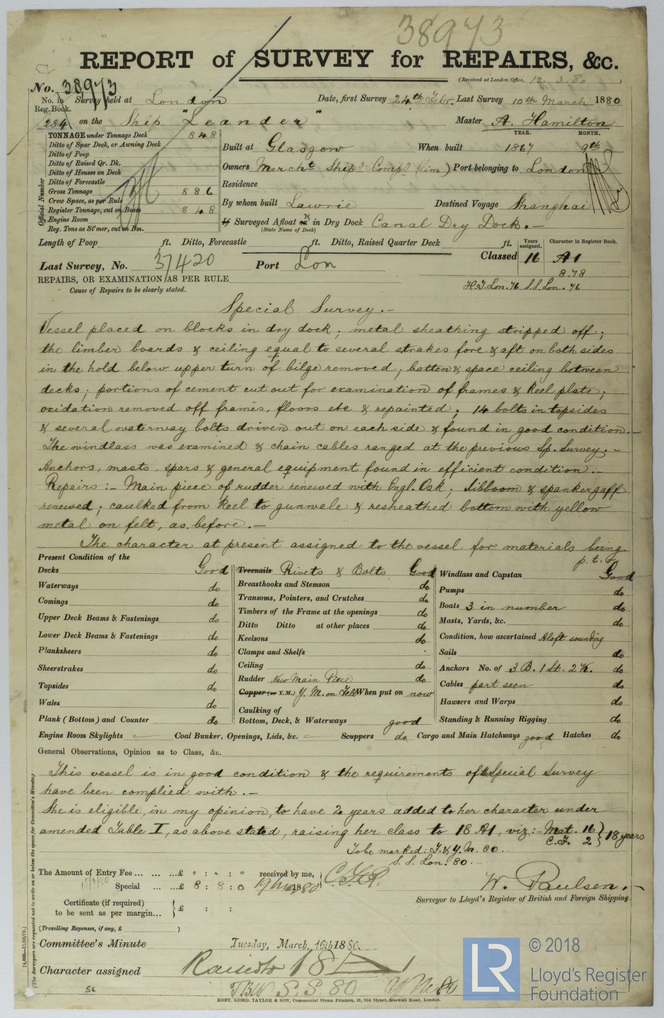 38973
REPORT of SURVEY for REPAIRS, &c.
(Received at London Office, 12.3.80
No. 38973
No. in Reg. Book. Survey held at London Date, first Survey 24th Febr. Last Survey 10th March 1880
284 on the Ship "Leander" Master A. Hamilton
TONNAGE under Tonnage Deck 848
Ditto of Spar Deck, or Awning Deck
Ditto of Poop
Ditto of Raised Qr. Dk.
Ditto of Houses on Deck
Ditto of Forecastle
Gross Tonnage 886
Crew Space, as per Rule
Register Tonnage, cut on Beam 848
Engine Room
Reg. Tons as St'mer, cut on Bm.
Official Number
YEAR. MONTH.
Built at Glasgow When built 1867 9th
Owners Mercht Ship Comp (Lim) Port belonging to London
Residence
By whom built Lawrie Destined Voyage Shanghai
If Surveyed Afloat or in Dry Dock Canal Dry Dock.-
(State Name of Dock)
Length of Poop ft. Ditto, Forecastle ft. Ditto, Raised Quarter Deck ft.
Years assigned. Character in Register Book.
Last Survey, No. 37420 Port Lon Classed 16 A1
8.78
REPAIRS, OR EXAMINATION AS PER RULE H.T. Lon. 76 S.S. Lon. 76
Cause of Repairs to be clearly stated.
Special Survey.-
Vessel placed on blocks in dry dock; metal sheathing stripped off;
the limber boards & ceiling equal to several strakes fore & aft on both sides
in the hold below upper turn of bilge removed; batten & space ceiling between
decks; portions of cement cut out for examination of frames & keel plate;
oxidation removed off frames, floors etc & repainted; 14 bolts in topsides
& several waterway bolts driven out on each side & found in good condition.-
The windlass was examined & chain cables ranged at the previous Sp. Survey.-
Anchors, masts, spars & general equipment found in efficient condition.-
Repairs:- Main piece of rudder renewed with Engl. Oak; Jibboom & spanker gaff
renewed; caulked from keel to gunwale & resheathed bottom with yellow
metal on felt, as before.-
The character at present assigned to the vessel for materials being
p.t.o.
Present Condition of the
Decks Good
Waterways do
Comings do
Upper Deck Beams & Fastenings do
Lower Deck Beams & Fastenings do
Planksheers do
Sheerstrakes do
Topsides do
Wales do
Plank (Bottom) and Counter do
Treenails Rivets & Bolts Good
Breasthooks and Stemson do
Transoms, Pointers, and Crutches do
Timbers of the Frame at the openings do
Ditto Ditto at other places do
Keelsons do
Clamps and Shelfs
Ceiling do
Rudder New Main Piece do
Copper (or Y.M.) Y. M. on Felt When put on now
Caulking of
Bottom, Deck, & Waterways good
Windlass and Capstan Good
Pumps do
Boats 3 in number do
Masts, Yards, &c. do
Condition, how ascertained Aloft sounding
Sails do
Anchors No. of 3 B. 1 St. 2 K. do
Cables part seen do
Hawsers and Warps do
Standing & Running Rigging do
Engine Room Skylights Coal Bunker, Openings, Lids, &c. - Scuppers do Cargo and Main Hatchways good Hatches do
General Observations, Opinion as to Class, &c.
This vessel is in good condition & the requirements of the Special Survey
have been complied with.-
She is eligible, in my opinion, to have 2 years added to her character under
amended Table I, as above stated, raising her class to 18 A1, viz:- Mat. 16
C.F. 2 } 18 years
To be marked: F. & Y. M. 80.
S.S. Lon. 80.-
The Amount of Entry Fee £ : : received by me,
Special £ 8 : 8 : 0 1880
Certificate (if required) to be sent as per margin £ : :
(Travelling Expenses, if any, £ )
W. Paulsen.-
Surveyor to Lloyd's Register of British and Foreign Shipping.
Committee's Minute Tuesday, March 16th 1880.
Character assigned Raised to 18 A1
S.S. 80 Y M 80
56
ROBT. EDMD. TAYLOR & SON, Commercial Steam Printers, 19, Old Street, Goswell Road, London.
(The Surveyors are requested not to write on or below the space for Committee's Minute.)
© 2018
LR
Lloyd's Register
Foundation